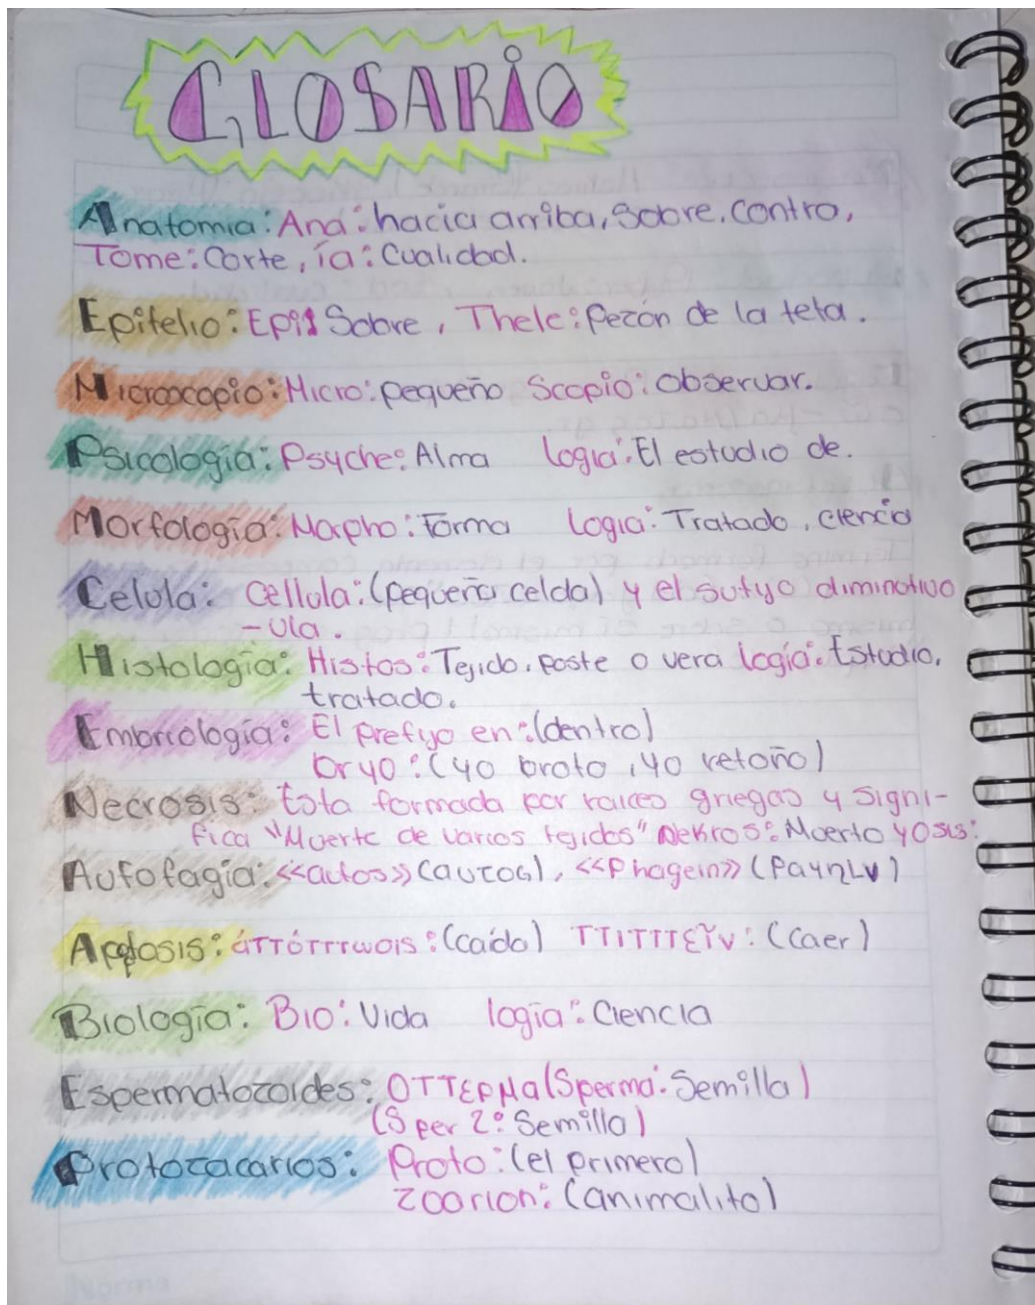 GLOSARIO
Anatomia: Aná: hacia arriba, Sobre, Contra,
Tome: Corte, ía: Cualidad.
Epitelio: Epi: Sobre, Thele: Pezón de la teta.
Microscopio: Micro: pequeño Scopio: observar.
Psicología: Psyche: Alma logia: El estudio de.
Morfología: Morpho: Forma logia: Tratado, ciencia
Celula: Cellula: (pequeña celda) y el sufijo diminutivo
-ula.
Histología: Histos: Tejido, poste o vera logía: Estudio,
tratado.
Embriología: El prefijo en: (dentro)
bryo: (yo broto, yo retoño)
Necrosis: Esta formada por raices griegas y signi-
fica "Muerte de varios tejidos" Nekros: Muerto y osis:
Autofagia: <<autos>> (αυτος), <<Phagein>> (φαγηιν)
Apoptosis: ἀπόπτωσις: (caído) πίπτεῖν: (Caer)
Biología: Bio: Vida logia: Ciencia
Espermatozoides: σπερμα (Sperma: Semilla)
(Sper 2: Semilla)
Protozoarios: Proto: (el primero)
zoarion: (animalito)
Norma